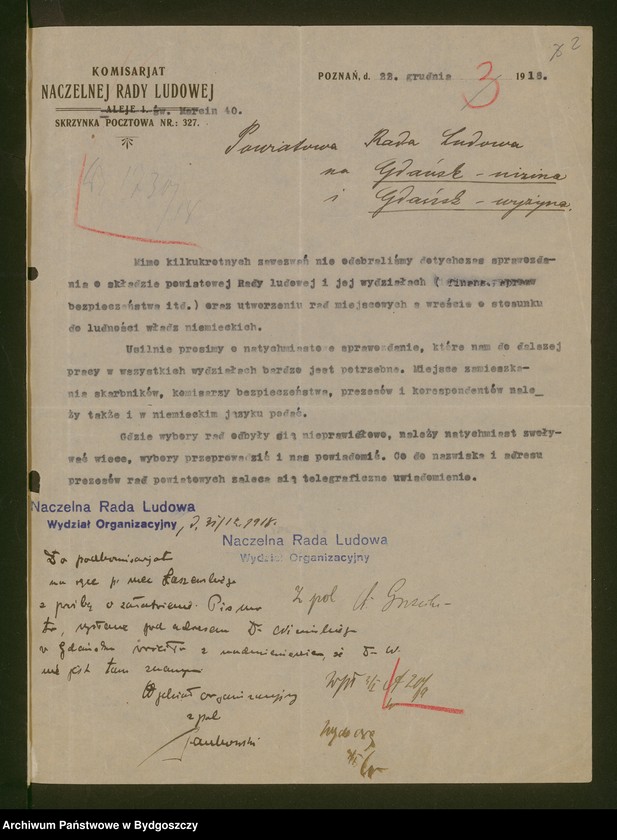 2
KOMISARJAT
NACZELNEJ RADY LUDOWEJ
ALEJE 1. św. Marcin 40.
SKRZYNKA POCZTOWA NR.: 327.
POZNAŃ, d. 22. grudnia 1918.
3
Powiatowa Rada Ludowa
na Gdańsk - nizina
i Gdańsk - wyżyna.
Mimo kilkukrotnych zawezwań nie odebraliśmy dotychczas sprawozda-
nia o składzie powiatowej Rady ludowej i jej wydziałach ( finans., spraw
bezpieczeństwa itd.) oraz utworzeniu rad miejscowych a wreście o stosunku
do ludności władz niemieckich.
Usilnie prosimy o natychmiastowe sprawozdanie, które nam do dalszej
pracy w wszystkich wydziałach bardzo jest potrzebne. Miejsce zamieszka-
nia skarbników, komisarzy bezpieczeństwa, prezesów i korespondentów nale_
ży także i w niemieckim języku podać.
Gdzie wybory rad odbyły się nieprawidłowo, należy natychmiast zwoły-
wać wiece, wybory przeprowadzić i nas powiadomić. Co do nazwiska i adresu
prezesów rad powiatowych zaleca się telegraficzne uwiadomienie.
Naczelna Rada Ludowa
Wydział Organizacyjny, d. 31/12. 1918.
Naczelna Rada Ludowa
Wydział Organizacyjny
Do podkomisarjat
na ręce p. mec Łaszewskiego
z prośbą o załatwienie. Pismo
to, wysłane pod adresem Dr.
w Gdańsku wróciło z nadmienieniem, że Dr. W.
nie jest tam znanym
Wydział organizacyjny
z pol
Jankowski
Z pol